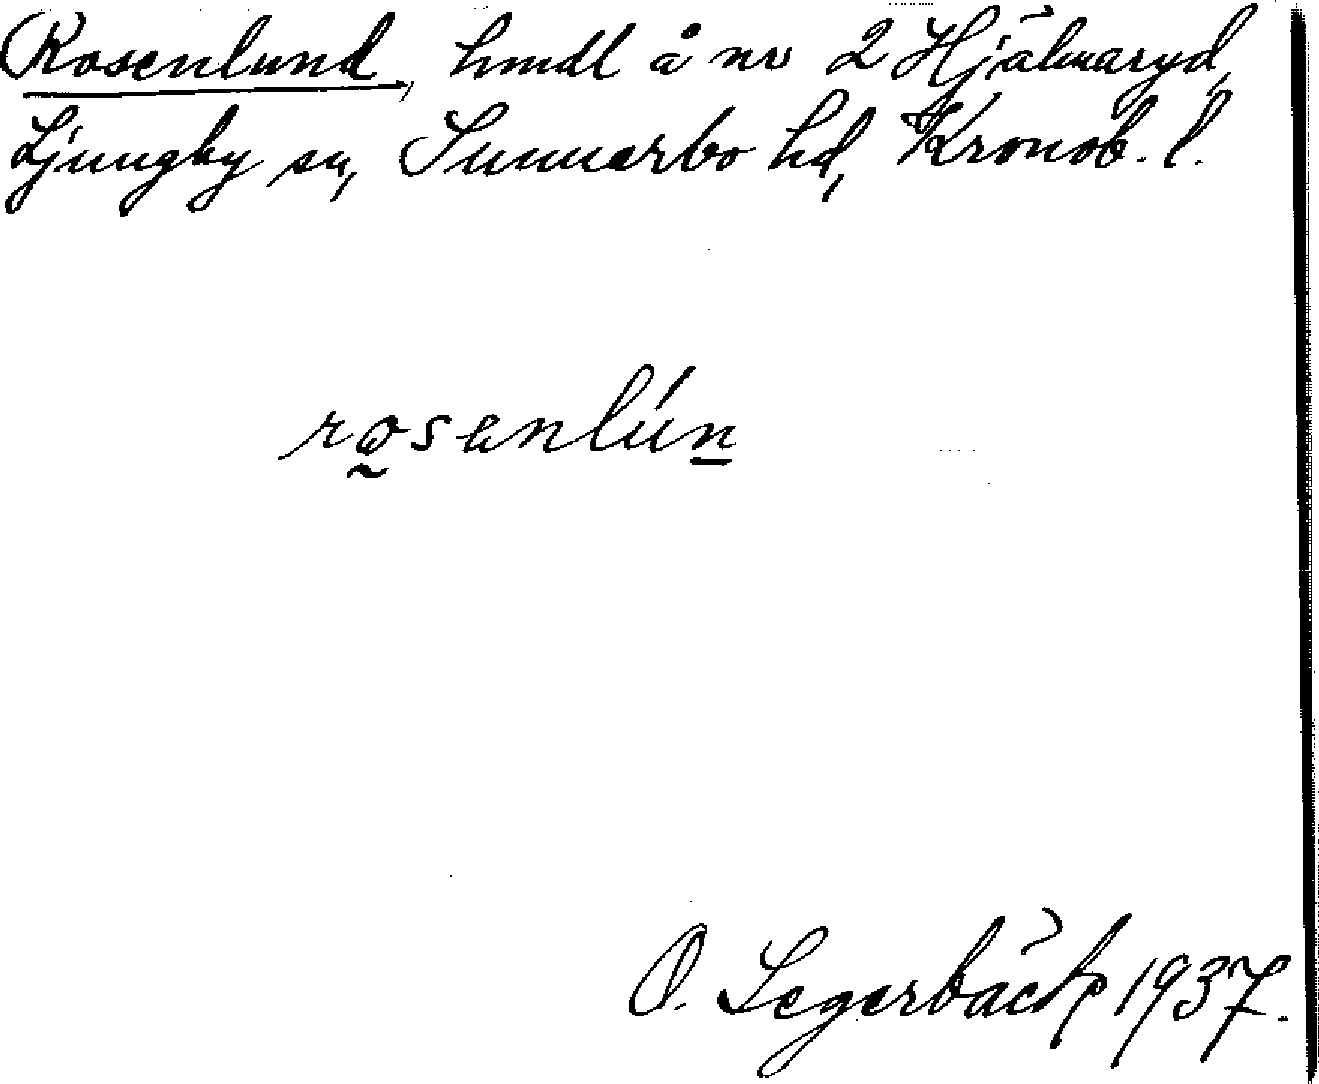 Rosenlund, hmdl å nr 2 Hjälmaryd,
Ljungby sn, Sunnerbo hd, Kronob. l.
rosenlún
O. Segerbäck 1937.